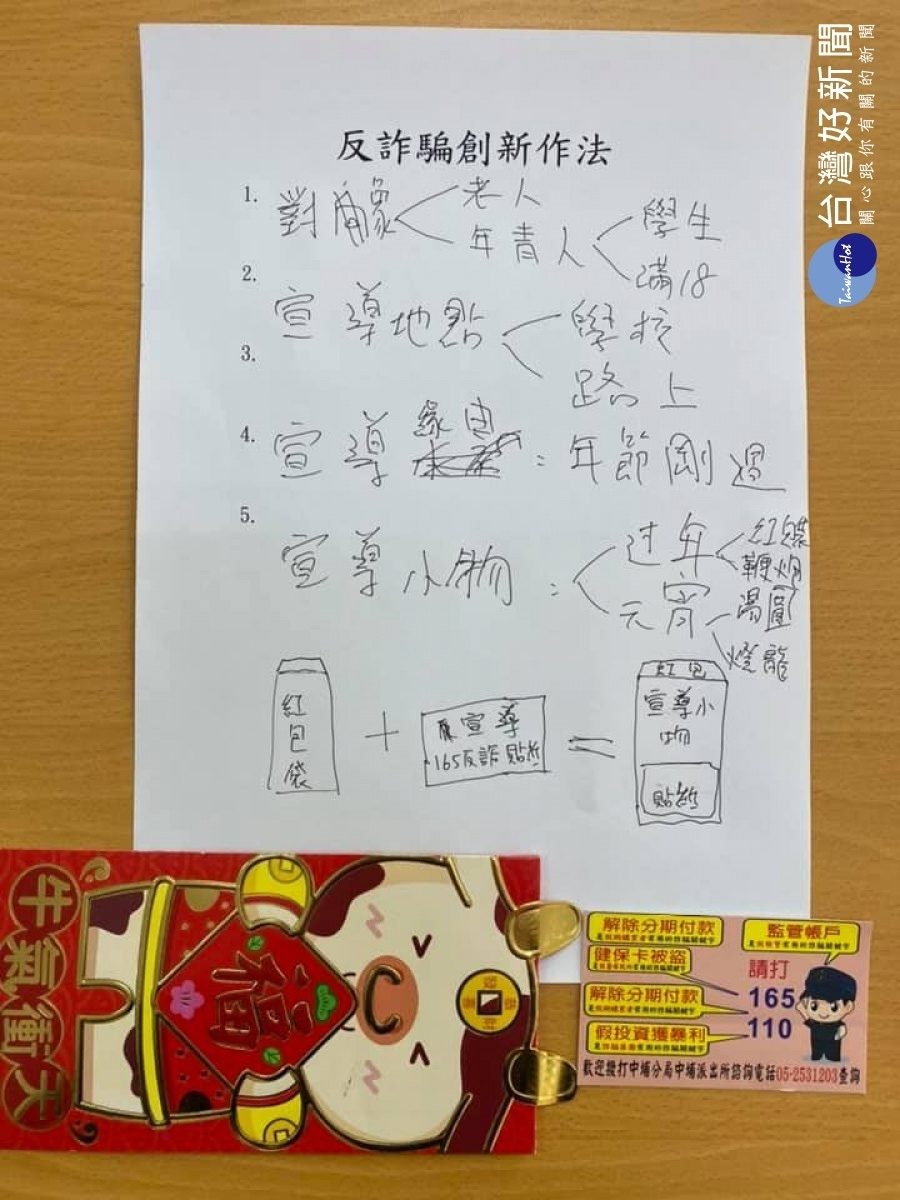 台灣好新聞
關心跟你有關的新聞
TaiwanHot
反詐騙創新作法
1. 對象 老人
年青人 學生
滿18
2. 宣導地點 學校
3. 路上
4. 宣導緣由：年節剛過
5. 宣導小物： 过年 紅包袋
鞭炮
元宵 湯圓
燈籠
紅包袋
+
宣導
165反詐貼紙
=
紅包
宣導小物
貼紙
牛氣衝天
福
解除分期付款
監管帳戶
健保卡被盜
請打
165
解除分期付款
110
假投資獲暴利
歡迎撥打中埔分局中埔派出所諮詢電話05-2531203查詢